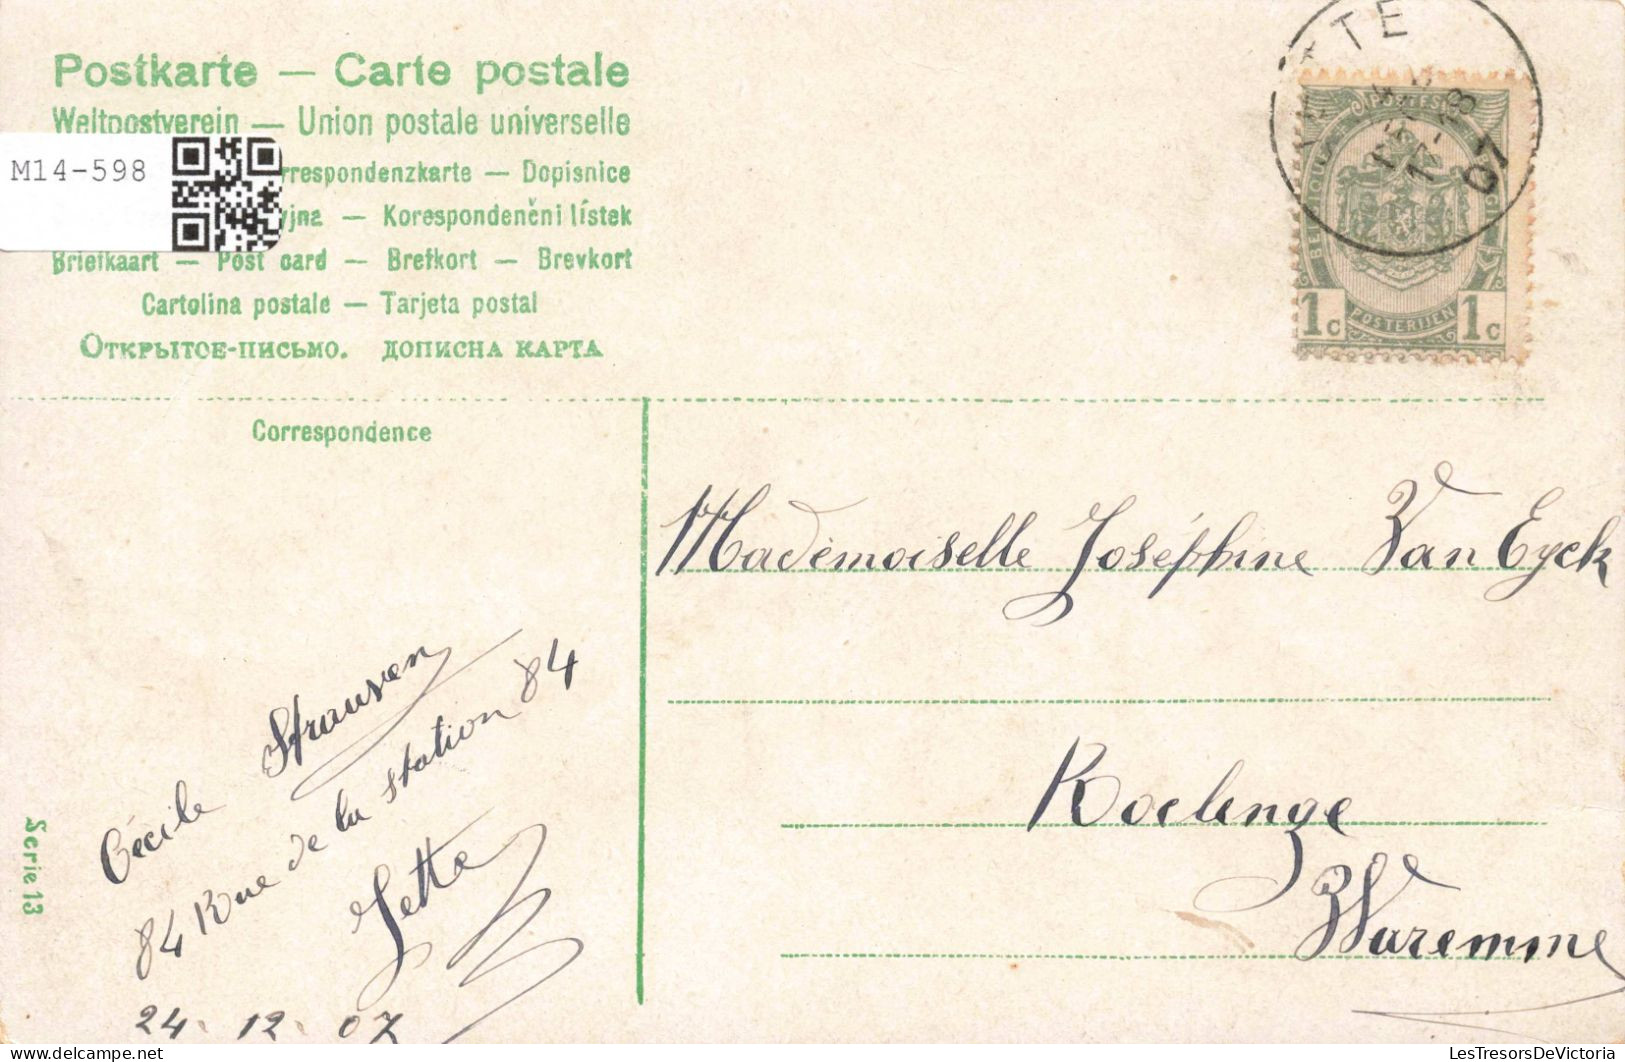 Postkarte — Carte postale
Weltpostverein — Union postale universelle
M14-598
rrespondenzkarte — Dopisnice
yjna — Korespondenční lístek
Briefkaart — Post card — Brefkort — Brevkort
Cartolina postale — Tarjeta postal
Открытое-письмо. дописна карта
Correspondence
TTE
07
POSTES
BELGIQUE
POSTERIJEN
1c 1c
Mademoiselle Joséphine Van Eyck
Roclenge
Waremme
Cécile Strauven
84 Rue de la station 84
Jette
24. 12. 07
Serie 13
LesTresorsDeVictoria